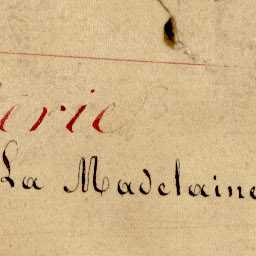 erie
La Madelaine